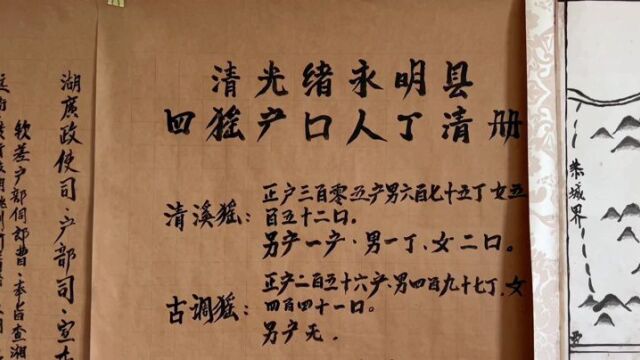 清光绪永明县
四猺户口人丁清册
清溪猺：
正户三百零五户男六百七十五丁女五
百五十二口。
另户一户、男一丁、女二口。
古调猺：
正户二百五十六户、男四百九十七丁、女
四百四十一口。
另户无.
湖廣政使司·户部司·宣
钦差户部侗郎曹·奉旨查湘
恭城界